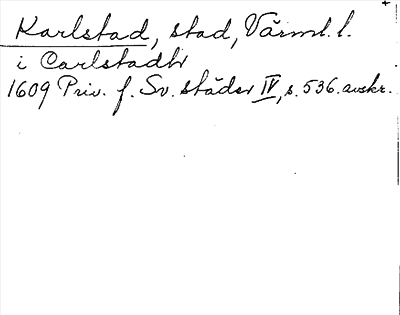 Karlstad, stad, Värml. l.
i Carlstadh
1609 Priv. f. Sv. städer IV, s. 536. avskr.